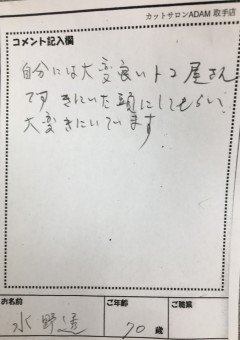 カットサロンADAM 取手店
コメント記入欄
自分には大変良いトコ屋さん
です きにいた頭にしてもらい
大変きにいています
お名前
ご年齢
ご職業
水野
70歳